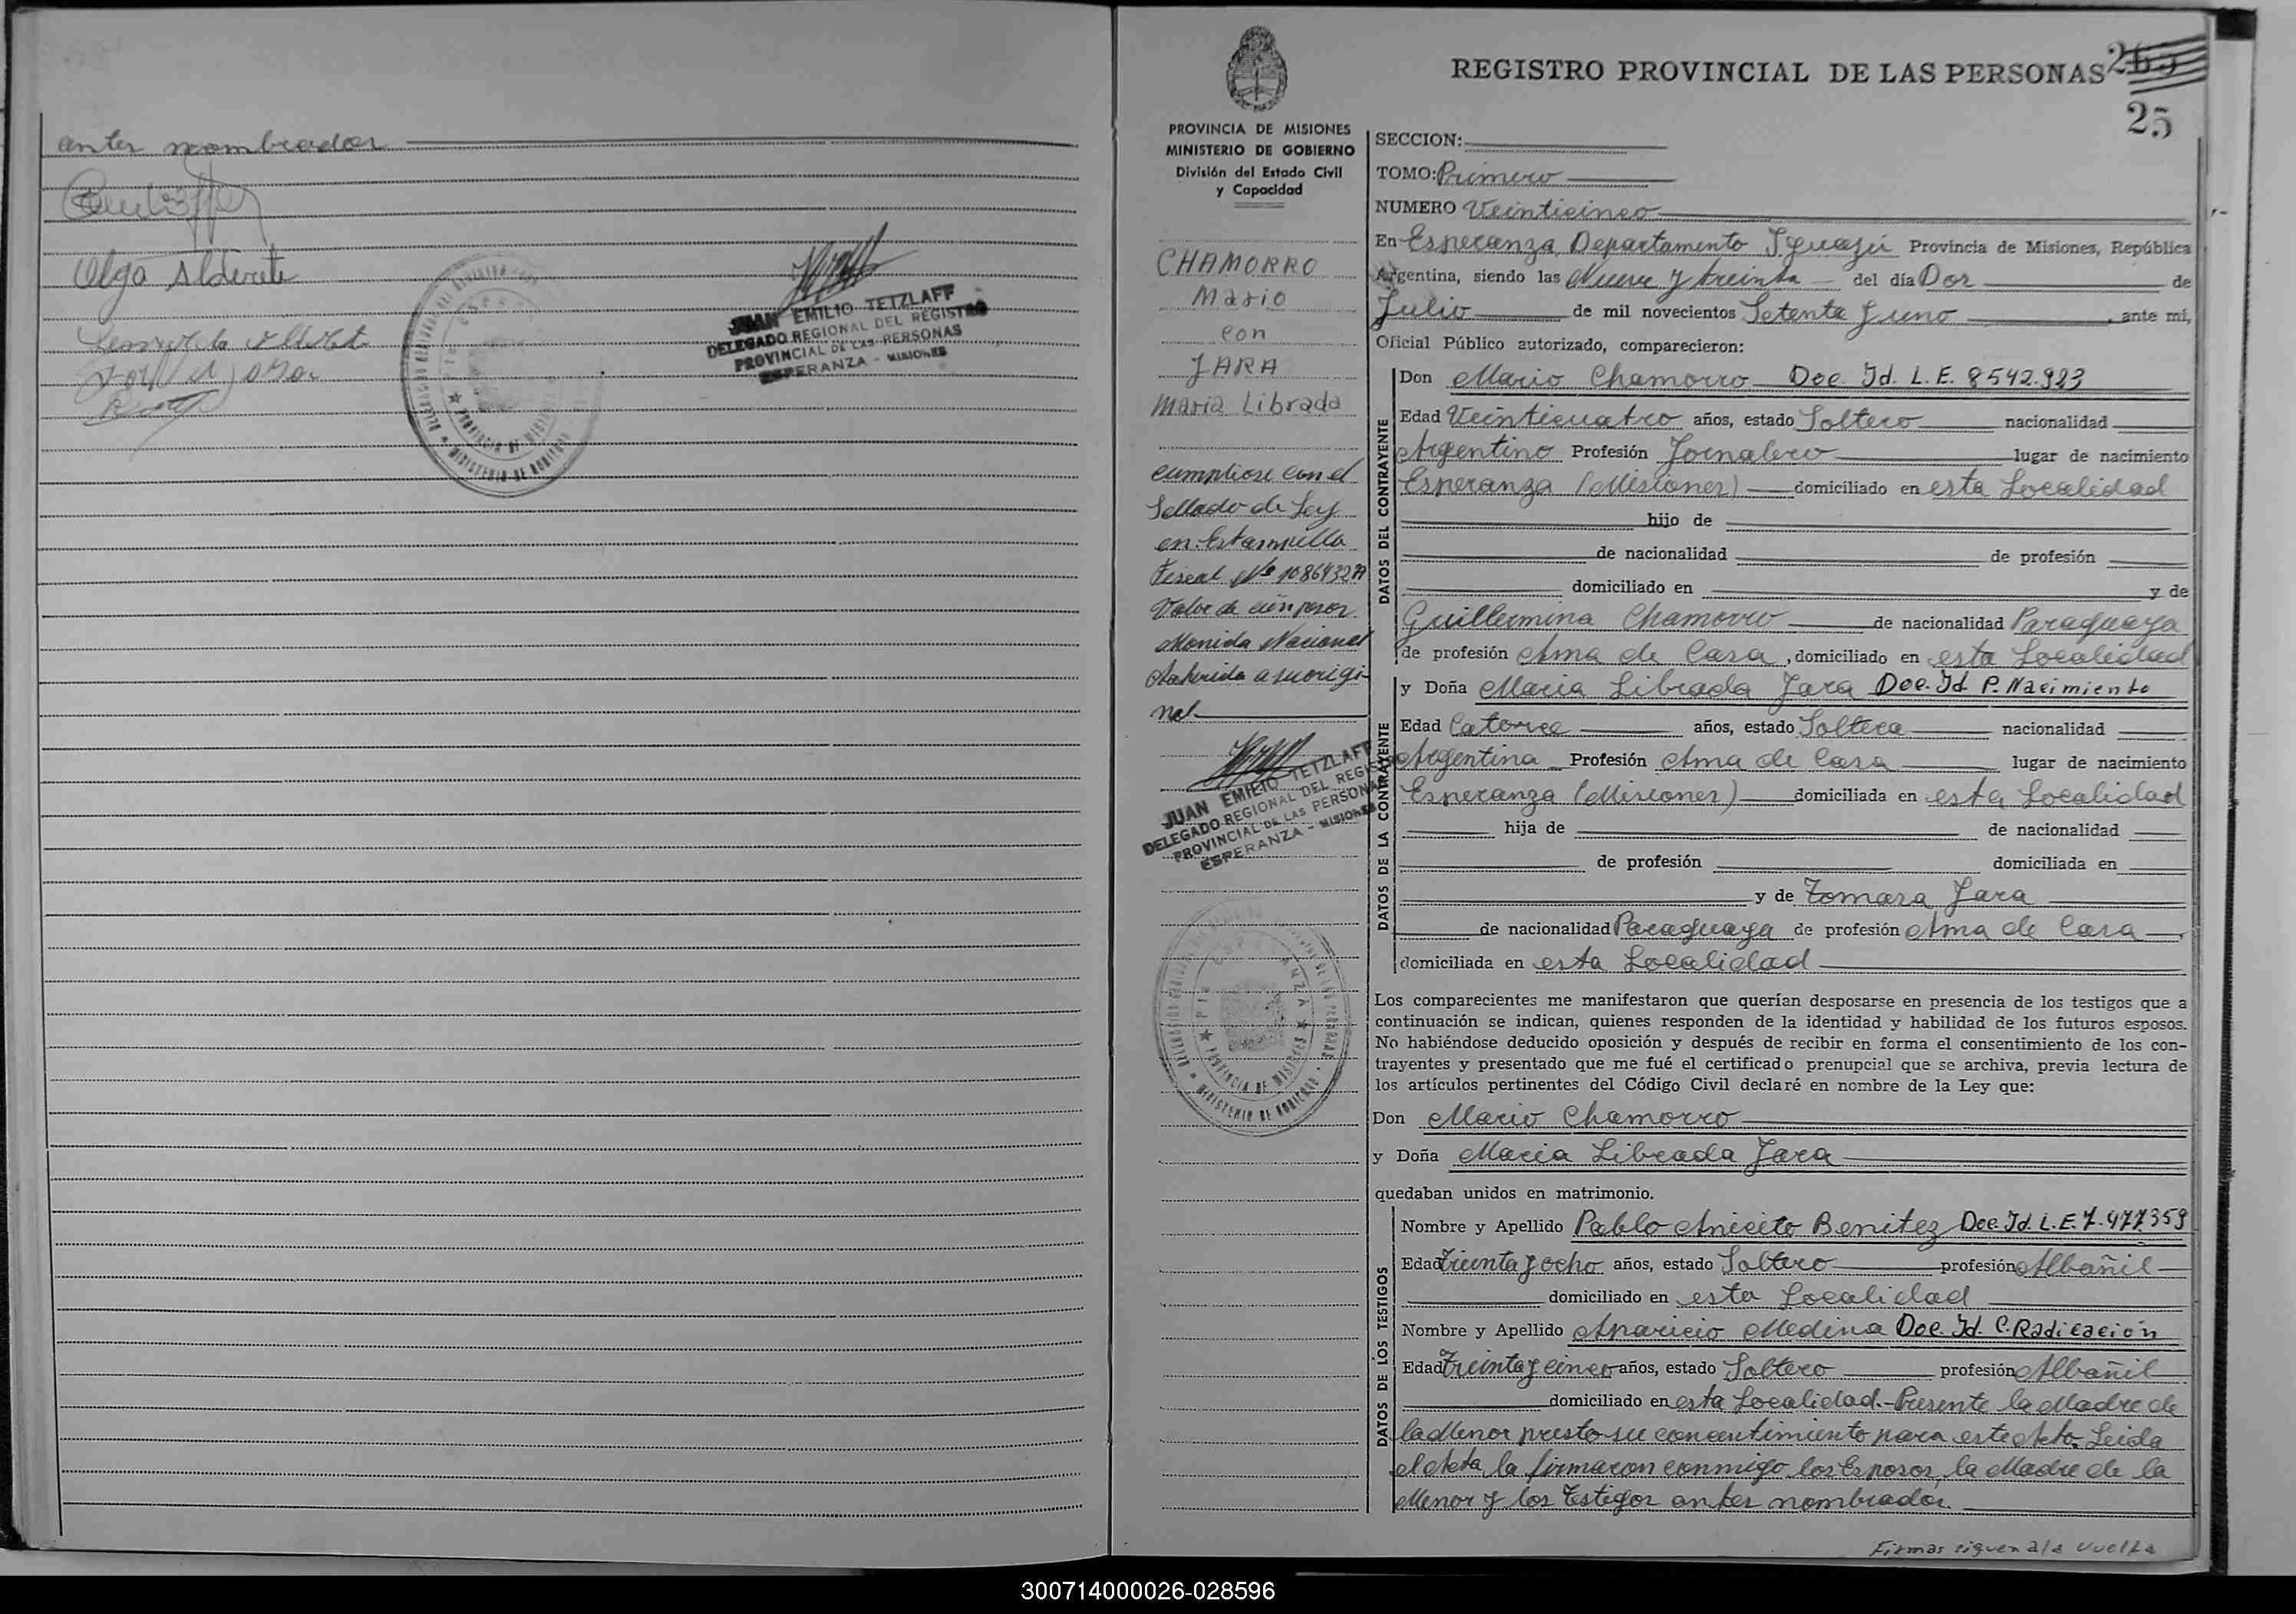 antes nombrados
Olga Alderete
JUAN EMILIO TETZLAFF
DELEGADO REGIONAL DEL REGISTRO
PROVINCIAL DE LAS PERSONAS
ESPERANZA - MISIONES
PROVINCIA DE MISIONES
REGISTRO PROVINCIAL DE LAS PERSONAS
265
25
PROVINCIA DE MISIONES
MINISTERIO DE GOBIERNO
División del Estado Civil
y Capacidad
CHAMORRO
Mario
con
JARA
Maria Librada
Cumpliose con el
Sellado de Ley
en Estampilla
Fiscal Nº
Valor de cien pesos
Moneda Nacional
Adherida a su origi-
nal
JUAN EMILIO TETZLAFF
DELEGADO REGIONAL DEL REGISTRO
PROVINCIAL DE LAS PERSONAS
ESPERANZA - MISIONES
PROVINCIA DE MISIONES
SECCION:
TOMO: Primero
NUMERO Veinticinco
En Esperanza, Departamento Iguazú Provincia de Misiones, República
Argentina, siendo las Nueve y treinta del día Dos de
Julio de mil novecientos Setenta y uno, ante mí,
Oficial Público autorizado, comparecieron:
DATOS DEL CONTRAYENTE
Don Mario Chamorro Doc. Id. L.E. 8542.923
Edad Veinticuatro años, estado Soltero nacionalidad
Argentino Profesión Jornalero lugar de nacimiento
Esperanza (Misiones) domiciliado en esta Localidad
hijo de
de nacionalidad de profesión
domiciliado en y de
Guillermina Chamorro de nacionalidad Paraguaya
de profesión Ama de Casa, domiciliado en esta Localidad
DATOS DE LA CONTRAYENTE
y Doña Maria Librada Jara Doc. Id P. Nacimiento
Edad Catorce años, estado Soltera nacionalidad
Argentina Profesión Ama de Casa lugar de nacimiento
Esperanza (Misiones) domiciliada en esta Localidad
hija de de nacionalidad
de profesión domiciliada en
y de Tomasa Jara
de nacionalidad Paraguaya de profesión Ama de Casa,
domiciliada en esta Localidad
Los comparecientes me manifestaron que querían desposarse en presencia de los testigos que a
continuación se indican, quienes responden de la identidad y habilidad de los futuros esposos.
No habiéndose deducido oposición y después de recibir en forma el consentimiento de los con-
trayentes y presentado que me fué el certificado prenupcial que se archiva, previa lectura de
los artículos pertinentes del Código Civil declaré en nombre de la Ley que:
Don Mario Chamorro
y Doña Maria Librada Jara
quedaban unidos en matrimonio.
DATOS DE LOS TESTIGOS
Nombre y Apellido Pablo Aniceto Benitez Doc. Id. L.E. 7.477359
Edad Treinta y ocho años, estado Soltero profesión Albañil
domiciliado en esta Localidad
Nombre y Apellido Aparicio Medina Doc. Id. C. Radicación
Edad Treinta y cinco años, estado Soltero profesión Albañil
domiciliado en esta Localidad.- Presente la Madre de
la Menor presto su concentimiento para este Acto. Leida
el Acta, la firmaron conmigo los Esposos, la Madre de la
Menor y los Testigos antes nombrados.
Firmas siguen a la vuelta
300714000026-028596